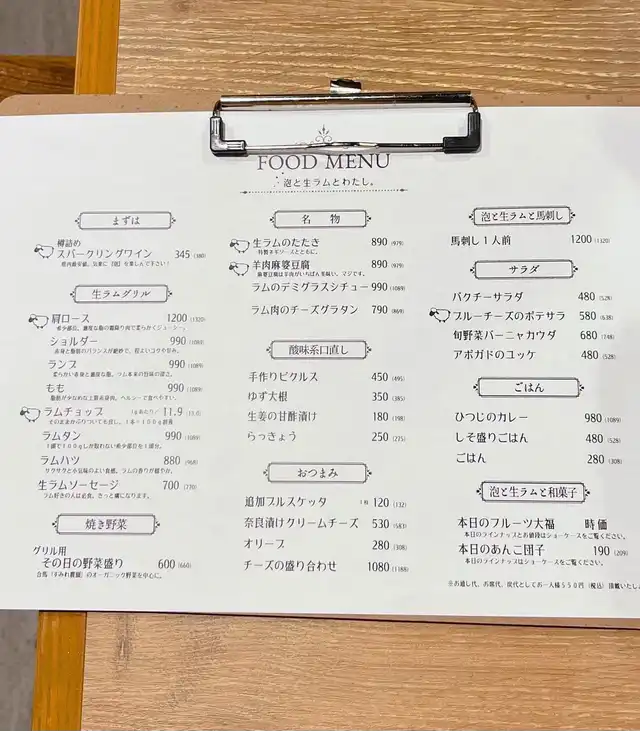 FOOD MENU
泡と生ラムとわたし。
まずは
樽詰め
スパークリングワイン 345 (380)
生ラムグリル
肩ロース 1200 (1320)
ショルダー 990 (1089)
ランプ 990 (1089)
もも 990 (1089)
ラムチョップ 1gあたり/ 11.9
ラムタン 990 (1089)
ラムハツ 880 (968)
生ラムソーセージ 700 (770)
焼き野菜
グリル用
その日の野菜盛り 600 (660)
名 物
生ラムのたたき 890 (979)
特製ネギソースとともに。
羊肉麻婆豆腐 890 (979)
麻婆豆腐は羊肉がいちばん美味い、マジです。
ラムのデミグラスシチュー 990 (1089)
ラム肉のチーズグラタン 790 (869)
酸味系口直し
手作りピクルス 450 (495)
ゆず大根 350 (385)
生姜の甘酢漬け 180 (198)
らっきょう 250 (275)
おつまみ
追加ブルスケッタ 120 (132)
奈良漬けクリームチーズ 530 (583)
オリーブ 280 (308)
チーズの盛り合わせ 1080 (1188)
泡と生ラムと馬刺し
馬刺し1人前 1200 (1320)
サラダ
パクチーサラダ 480 (528)
ブルーチーズのポテサラ 580 (638)
旬野菜バーニャカウダ 680 (748)
アボガドのユッケ 480 (528)
ごはん
ひつじのカレー 980 (1089)
しそ盛りごはん 480 (528)
ごはん 280 (308)
泡と生ラムと和菓子
本日のフルーツ大福 時価
本日のラインナップとお値段はショーケースをご覧ください。
本日のあんこ団子 190 (209)
本日のラインナップはショーケースをご覧ください。
※お通し代、お席代、炭代としてお一人様550円(税込)頂戴いたし